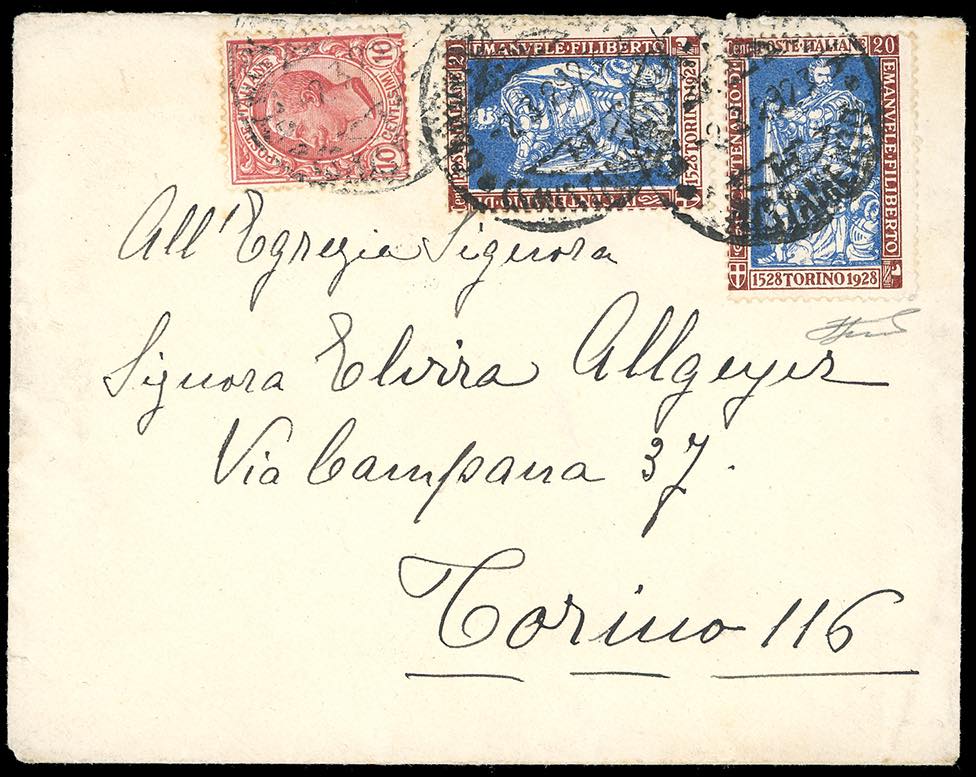 POSTE ITALIANE
10 CENTESIMI 10
POSTE ITALIANE 20
EMANVELE·FILIBERTO
1528 TORINO 1928
Cent. POSTE ITALIANE 20
CENTENARIO DI
EMANVELE·FILIBERTO
1528 TORINO 1928
All'Egregia Signora
Signora Elvira Allgeyer
Via Campana 37.
Torino 116